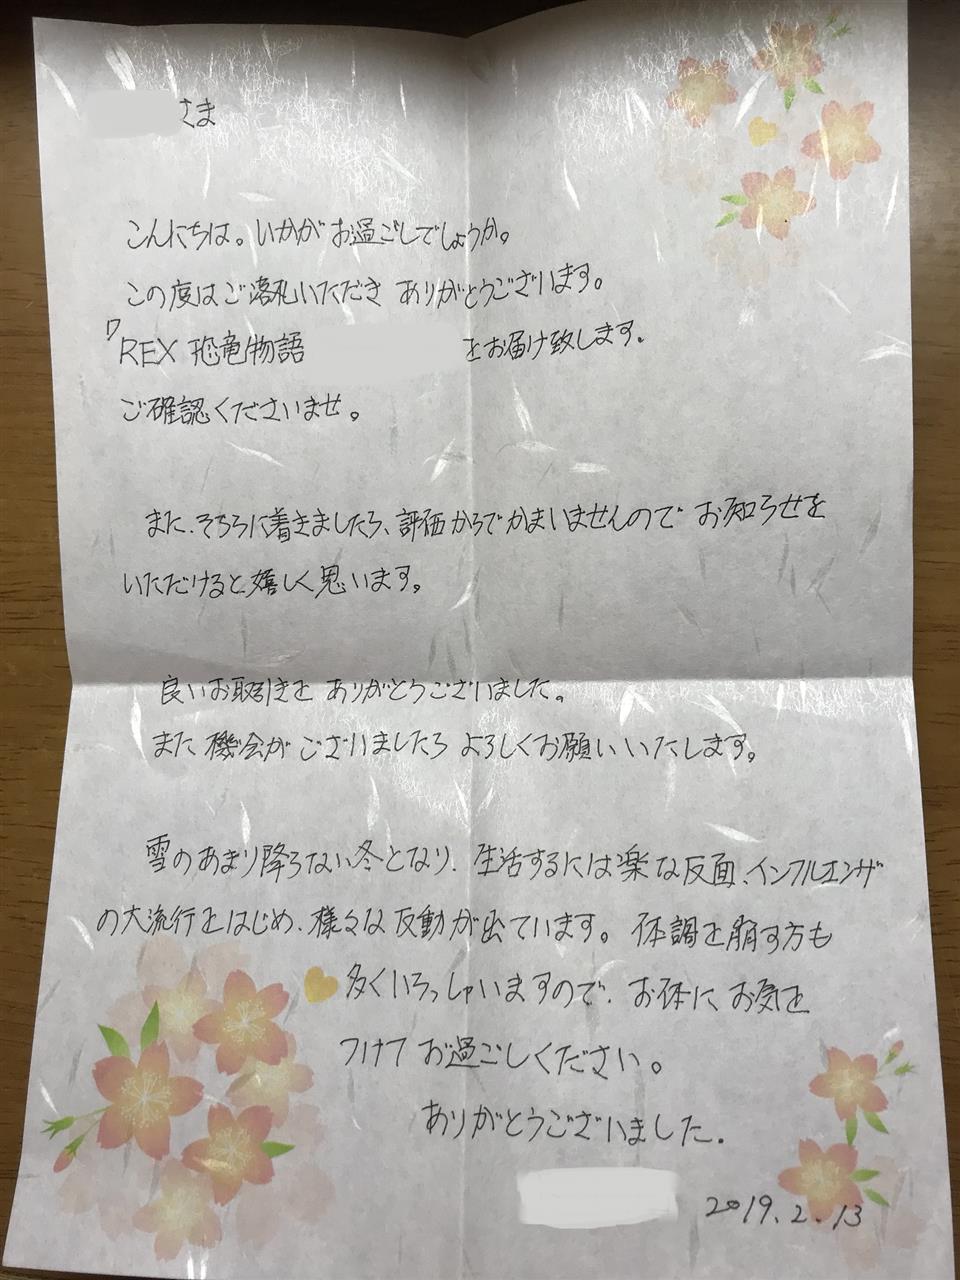 さま
こんにちは。いかがお過ごしでしょうか。
この度はご落札いただき ありがとうございます。
「REX 恐竜物語 をお届け致します。
ご確認くださいませ。
また、そちらに着きましたら、評価からでかまいませんので お知らせを
いただけると嬉しく思います。
良いお取引きを ありがとうございました。
また機会がございましたら よろしくお願いいたします。
雪のあまり降らない冬となり、生活するには楽な反面、インフルエンザ
の大流行をはじめ、様々な反動が出ています。体調を崩す方も
多くいらっしゃいますので、お体に お気を
つけて お過ごしください。
ありがとうございました。
2019.2.13